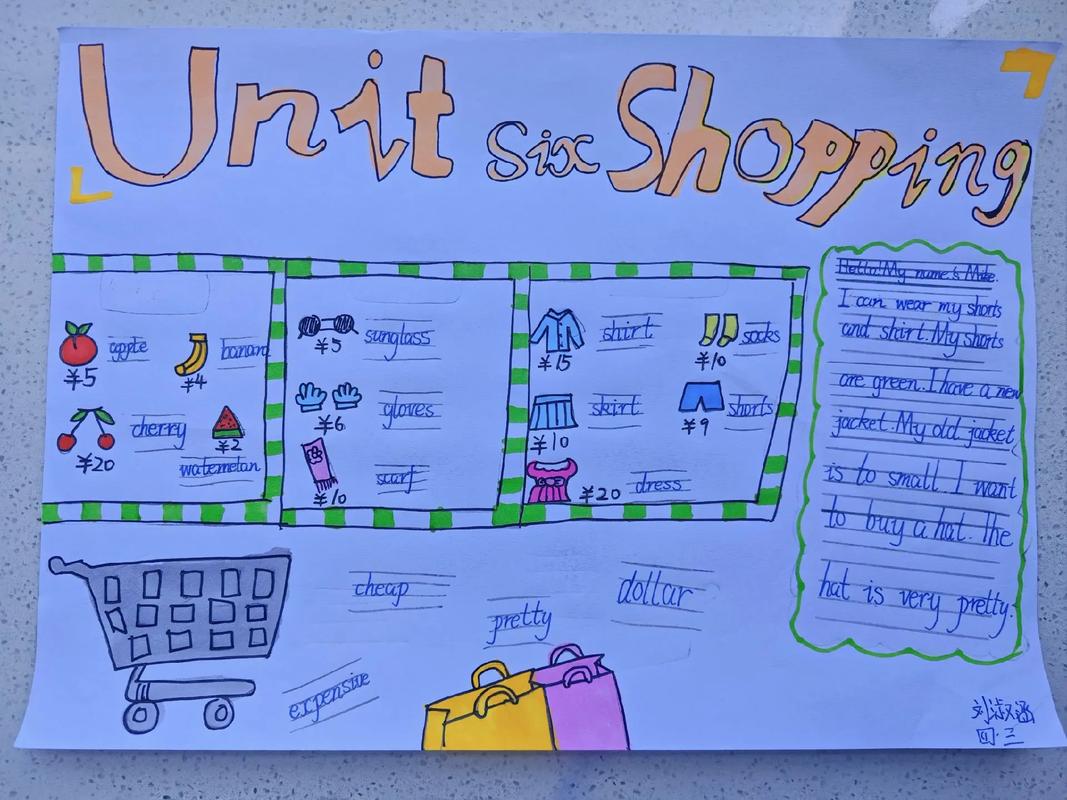 Unit Six Shopping
apple
¥5
banana
¥4
cherry
¥20
¥2
watermelon
sunglass
¥5
gloves
¥6
scarf
¥10
shirt
¥15
socks
¥10
skirt
¥10
shorts
¥9
¥20 dress
Hello! My name's Mike.
I can wear my shorts
and shirt. My shorts
are green. I have a new
jacket. My old jacket
is to small. I want
to buy a hat. The
hat is very pretty.
cheap
pretty
dollar
expensive
刘淑涵
四·三